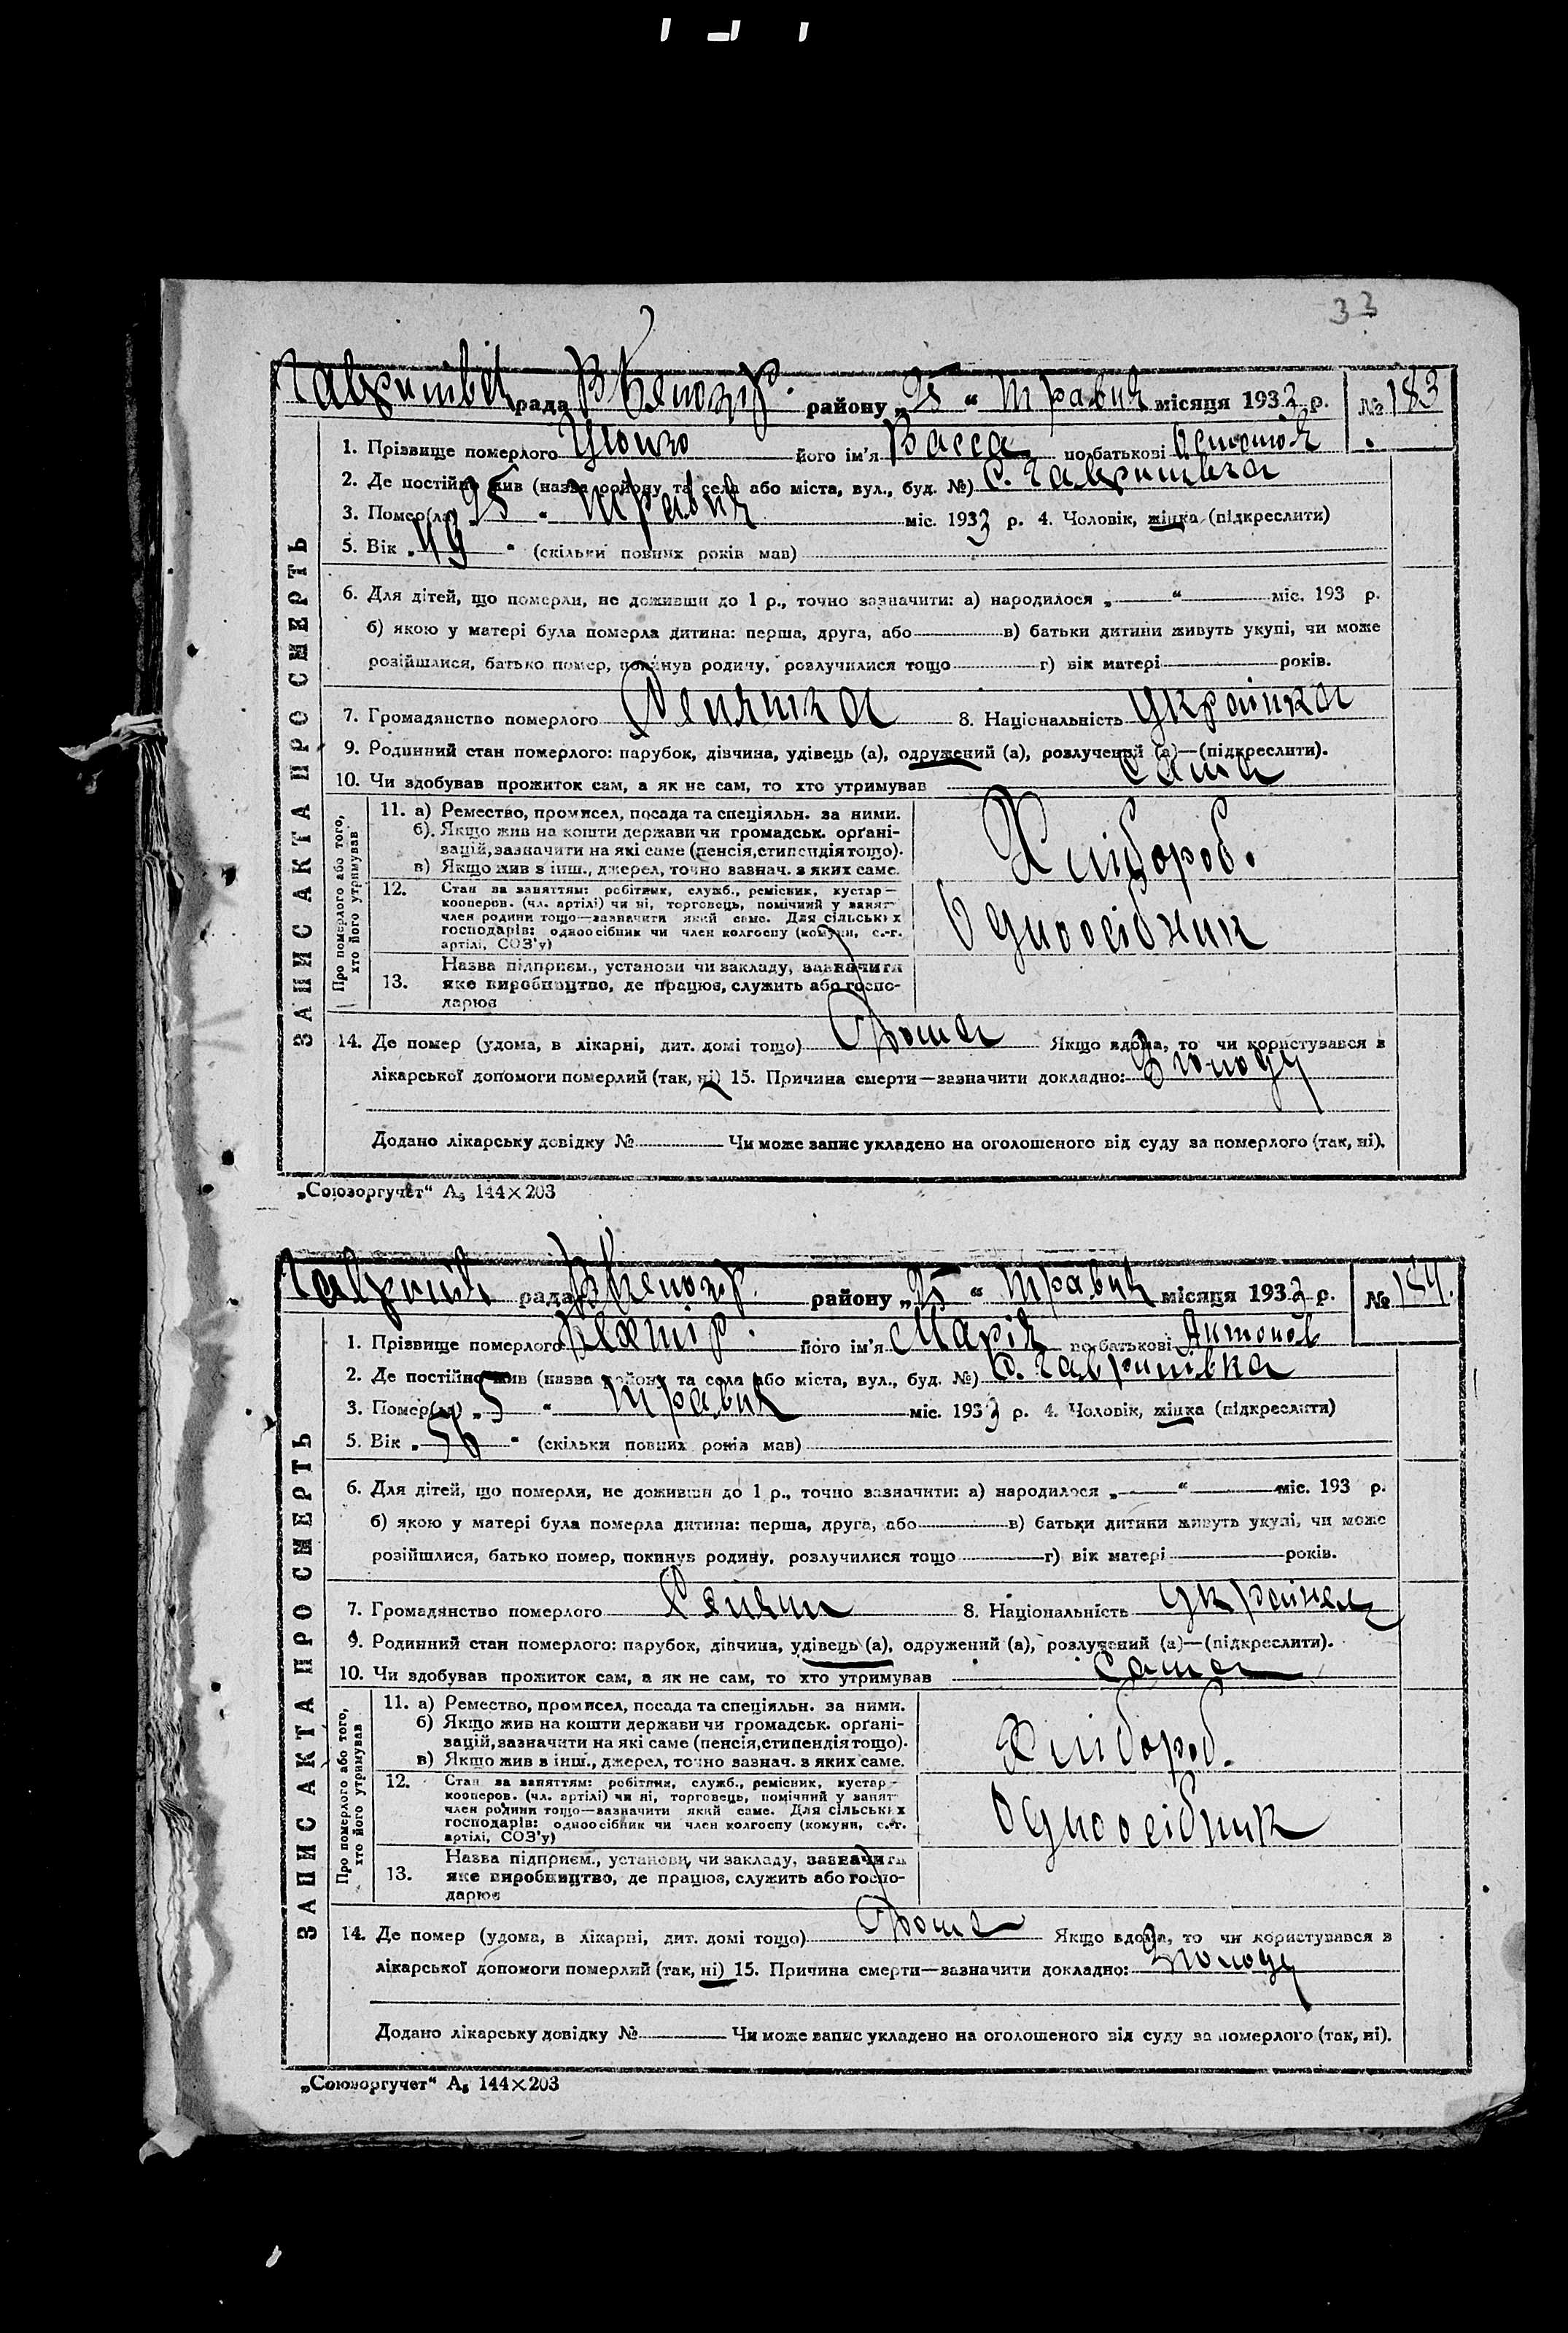 33
рада району „25“ Травня місяця 1933 р. № 183
1. Прізвище померлого його ім'я Васса по батькові
2. Де постійно жив (назва району та села або міста, вул., буд. №) с. Гавришівка
3. Помер(ла) „25“ Травня міс. 1933 р. 4. Чоловік, жінка (підкреслити)
5. Вік „49“ (скільки повних років мав)
6. Для дітей, що померли, не доживши до 1 р., точно зазначити: а) народилося „ “ міс. 193 р.
б) якою у матері була померла дитина: перша, друга, або в) батьки дитини живуть укупі, чи може
розійшлися, батько помер, покинув родину, розлучилися тощо г) вік матері років.
7. Громадянство померлого Селянка 8. Національність Українка
9. Родинний стан померлого: парубок, дівчина, удівець (а), одружений (а), розлучений (а)—(підкреслити).
10. Чи здобував прожиток сам, а як не сам, то хто утримував Сама
ЗАПИС АКТА ПРО СМЕРТЬ
Про померлого або того, хто його утримував
11. а) Ремество, промисел, посада та спеціяльн. за ними.
б) Якщо жив на кошти держави чи громадськ. орґані-
зацій, зазначити на які саме (пенсія, стипендія тощо).
в) Якщо жив з інш., джерел, точно зазнач. з яких саме.
Хлібороб.
12. Стан за заняттям: робітник, служб., ремісник, кустар—
кооперов. (чл. артілі) чи ні, торговець, помічний у занят
член родини тощо—зазначити який саме. Для сільських
господарів: одноосібник чи член колгоспу (комуни, с.-г.
артілі, СОЗ'у)
Одноосібник
13. Назва підприєм., установи чи закладу, зазначити
яке виробництво, де працює, служить або госпо-
дарює
14. Де помер (удома, в лікарні, дит. домі тощо) Дома Якщо вдома, то чи користувався з
лікарської допомоги померлий (так, ні) 15. Причина смерти—зазначити докладно: З голоду
Додано лікарську довідку № Чи може запис укладено на оголошеного від суду за померлого (так, ні).
„Союзоргучет“ А₅ 144×203
рада району „25“ Травня місяця 1933 р. № 184.
1. Прізвище померлого його ім'я Марія по батькові Антонов
2. Де постійно жив (назва району та села або міста, вул., буд. №) с. Гавришівка
3. Помер(ла) „5“ Травня міс. 1933 р. 4. Чоловік, жінка (підкреслити)
5. Вік „56“ (скільки повних років мав)
6. Для дітей, що померли, не доживши до 1 р., точно зазначити: а) народилося „ “ міс. 193 р.
б) якою у матері була померла дитина: перша, друга, або в) батьки дитини живуть укупі, чи може
розійшлися, батько помер, покинув родину, розлучилися тощо г) вік матері років.
7. Громадянство померлого 8. Національність
9. Родинний стан померлого: парубок, дівчина, удівець (а), одружений (а), розлучений (а)—(підкреслити).
10. Чи здобував прожиток сам, а як не сам, то хто утримував Сама
ЗАПИС АКТА ПРО СМЕРТЬ
Про померлого або того, хто його утримував
11. а) Ремество, промисел, посада та спеціяльн. за ними.
б) Якщо жив на кошти держави чи громадськ. орґані-
зацій, зазначити на які саме (пенсія, стипендія тощо).
в) Якщо жив з інш., джерел, точно зазнач. з яких саме.
Хлібороб.
12. Стан за заняттям: робітник, служб., ремісник, кустар—
кооперов. (чл. артілі) чи ні, торговець, помічний у занят
член родини тощо—зазначити який саме. Для сільських
господарів: одноосібник чи член колгоспу (комуни, с.-г.
артілі, СОЗ'у)
Одноосібник
13. Назва підприєм., установи, чи закладу, зазначити
яке виробництво, де працює, служить або госпо-
дарює
14. Де помер (удома, в лікарні, дит. домі тощо) Дома Якщо вдома, то чи користувався з
лікарської допомоги померлий (так, ні) 15. Причина смерти—зазначити докладно: З голоду
Додано лікарську довідку № Чи може запис укладено на оголошеного від суду за померлого (так, ні).
„Союзоргучет“ А₅ 144×203